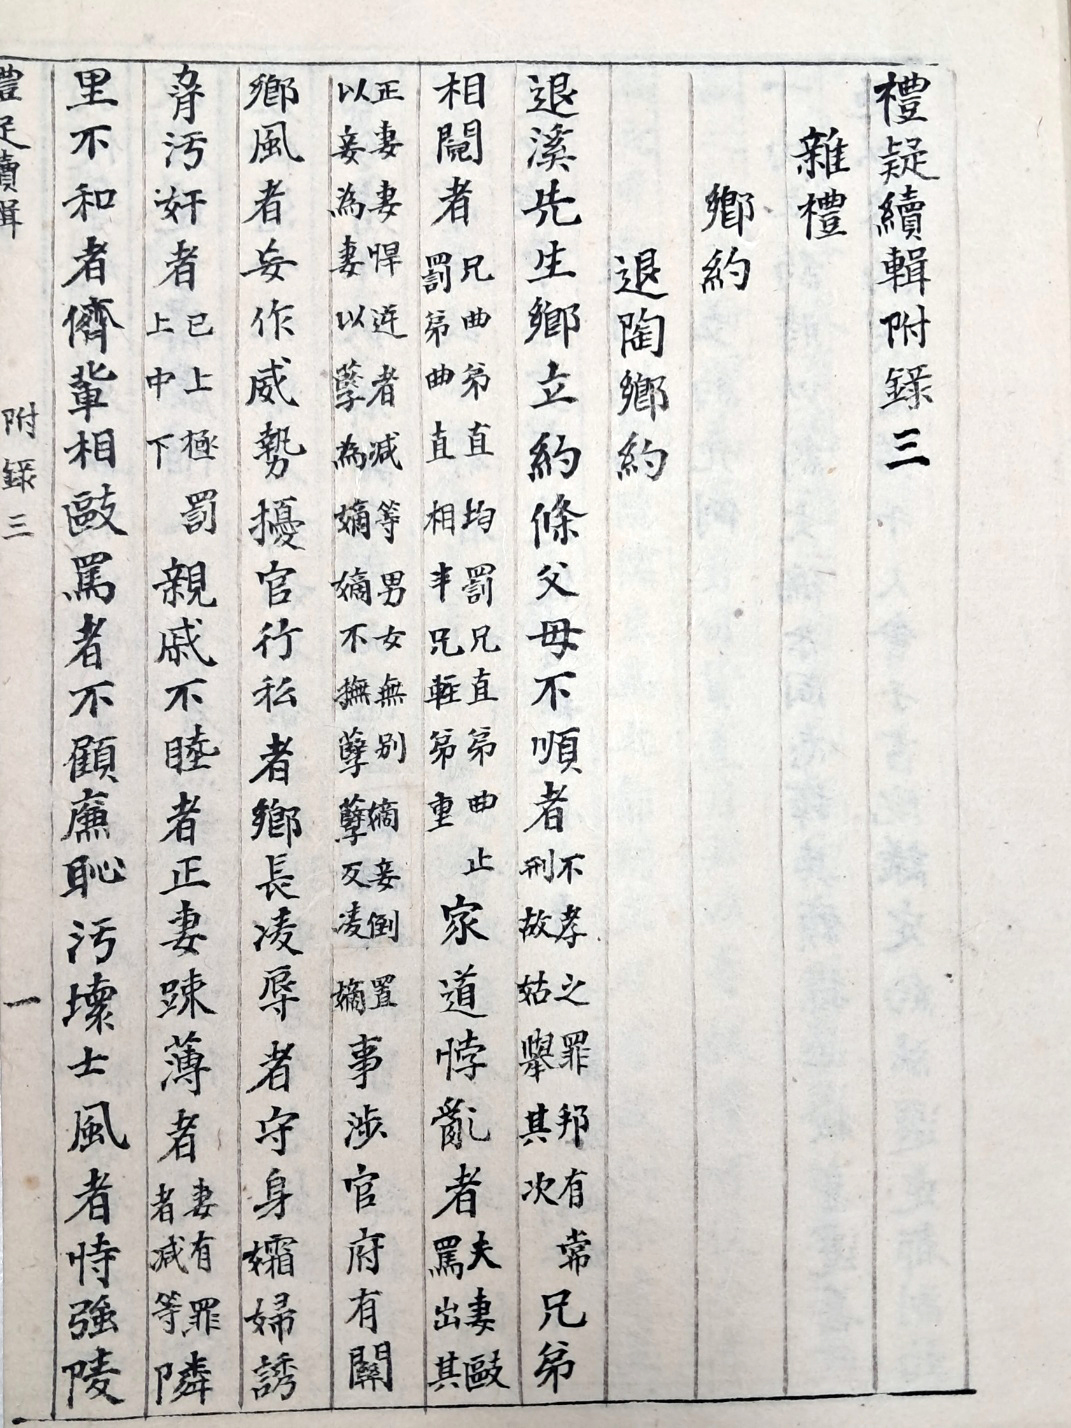 禮疑續輯附錄三
雜禮
鄉約
退陶鄉約
退溪先生鄉立約條父母不順者不孝之罪邦有常刑故姑舉其次兄弟
相鬩者兄曲弟直均罰兄直弟曲止罰弟曲直相半兄輕弟重家道悖亂者夫妻毆罵出其
正妻妻悍逆者减等男女無别嫡妾倒置以妾為妻以孽為嫡嫡不撫孽孽反凌嫡事涉官府有關
鄉風者妄作威勢擾官行私者鄉長凌辱者守身孀婦誘
脅汚奸者已上極罰上中下親戚不睦者正妻踈薄者妻有罪者减等隣
里不和者儕輩相毆罵者不顧廉恥汚壞士風者恃強陵
禮疑續輯 附錄三 一